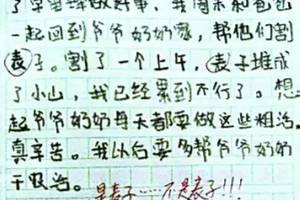 了学雷锋做好事，我周末和爸爸
一起回到爷爷奶奶家，帮他们割
表子。割了一个上午，表子堆成
了小山，我已经累到不行了。想
起爷爷奶奶每天都要做这些粗活。
真辛苦。我以后要多帮爷爷奶奶
干活。
是麦子……不是表子!!!